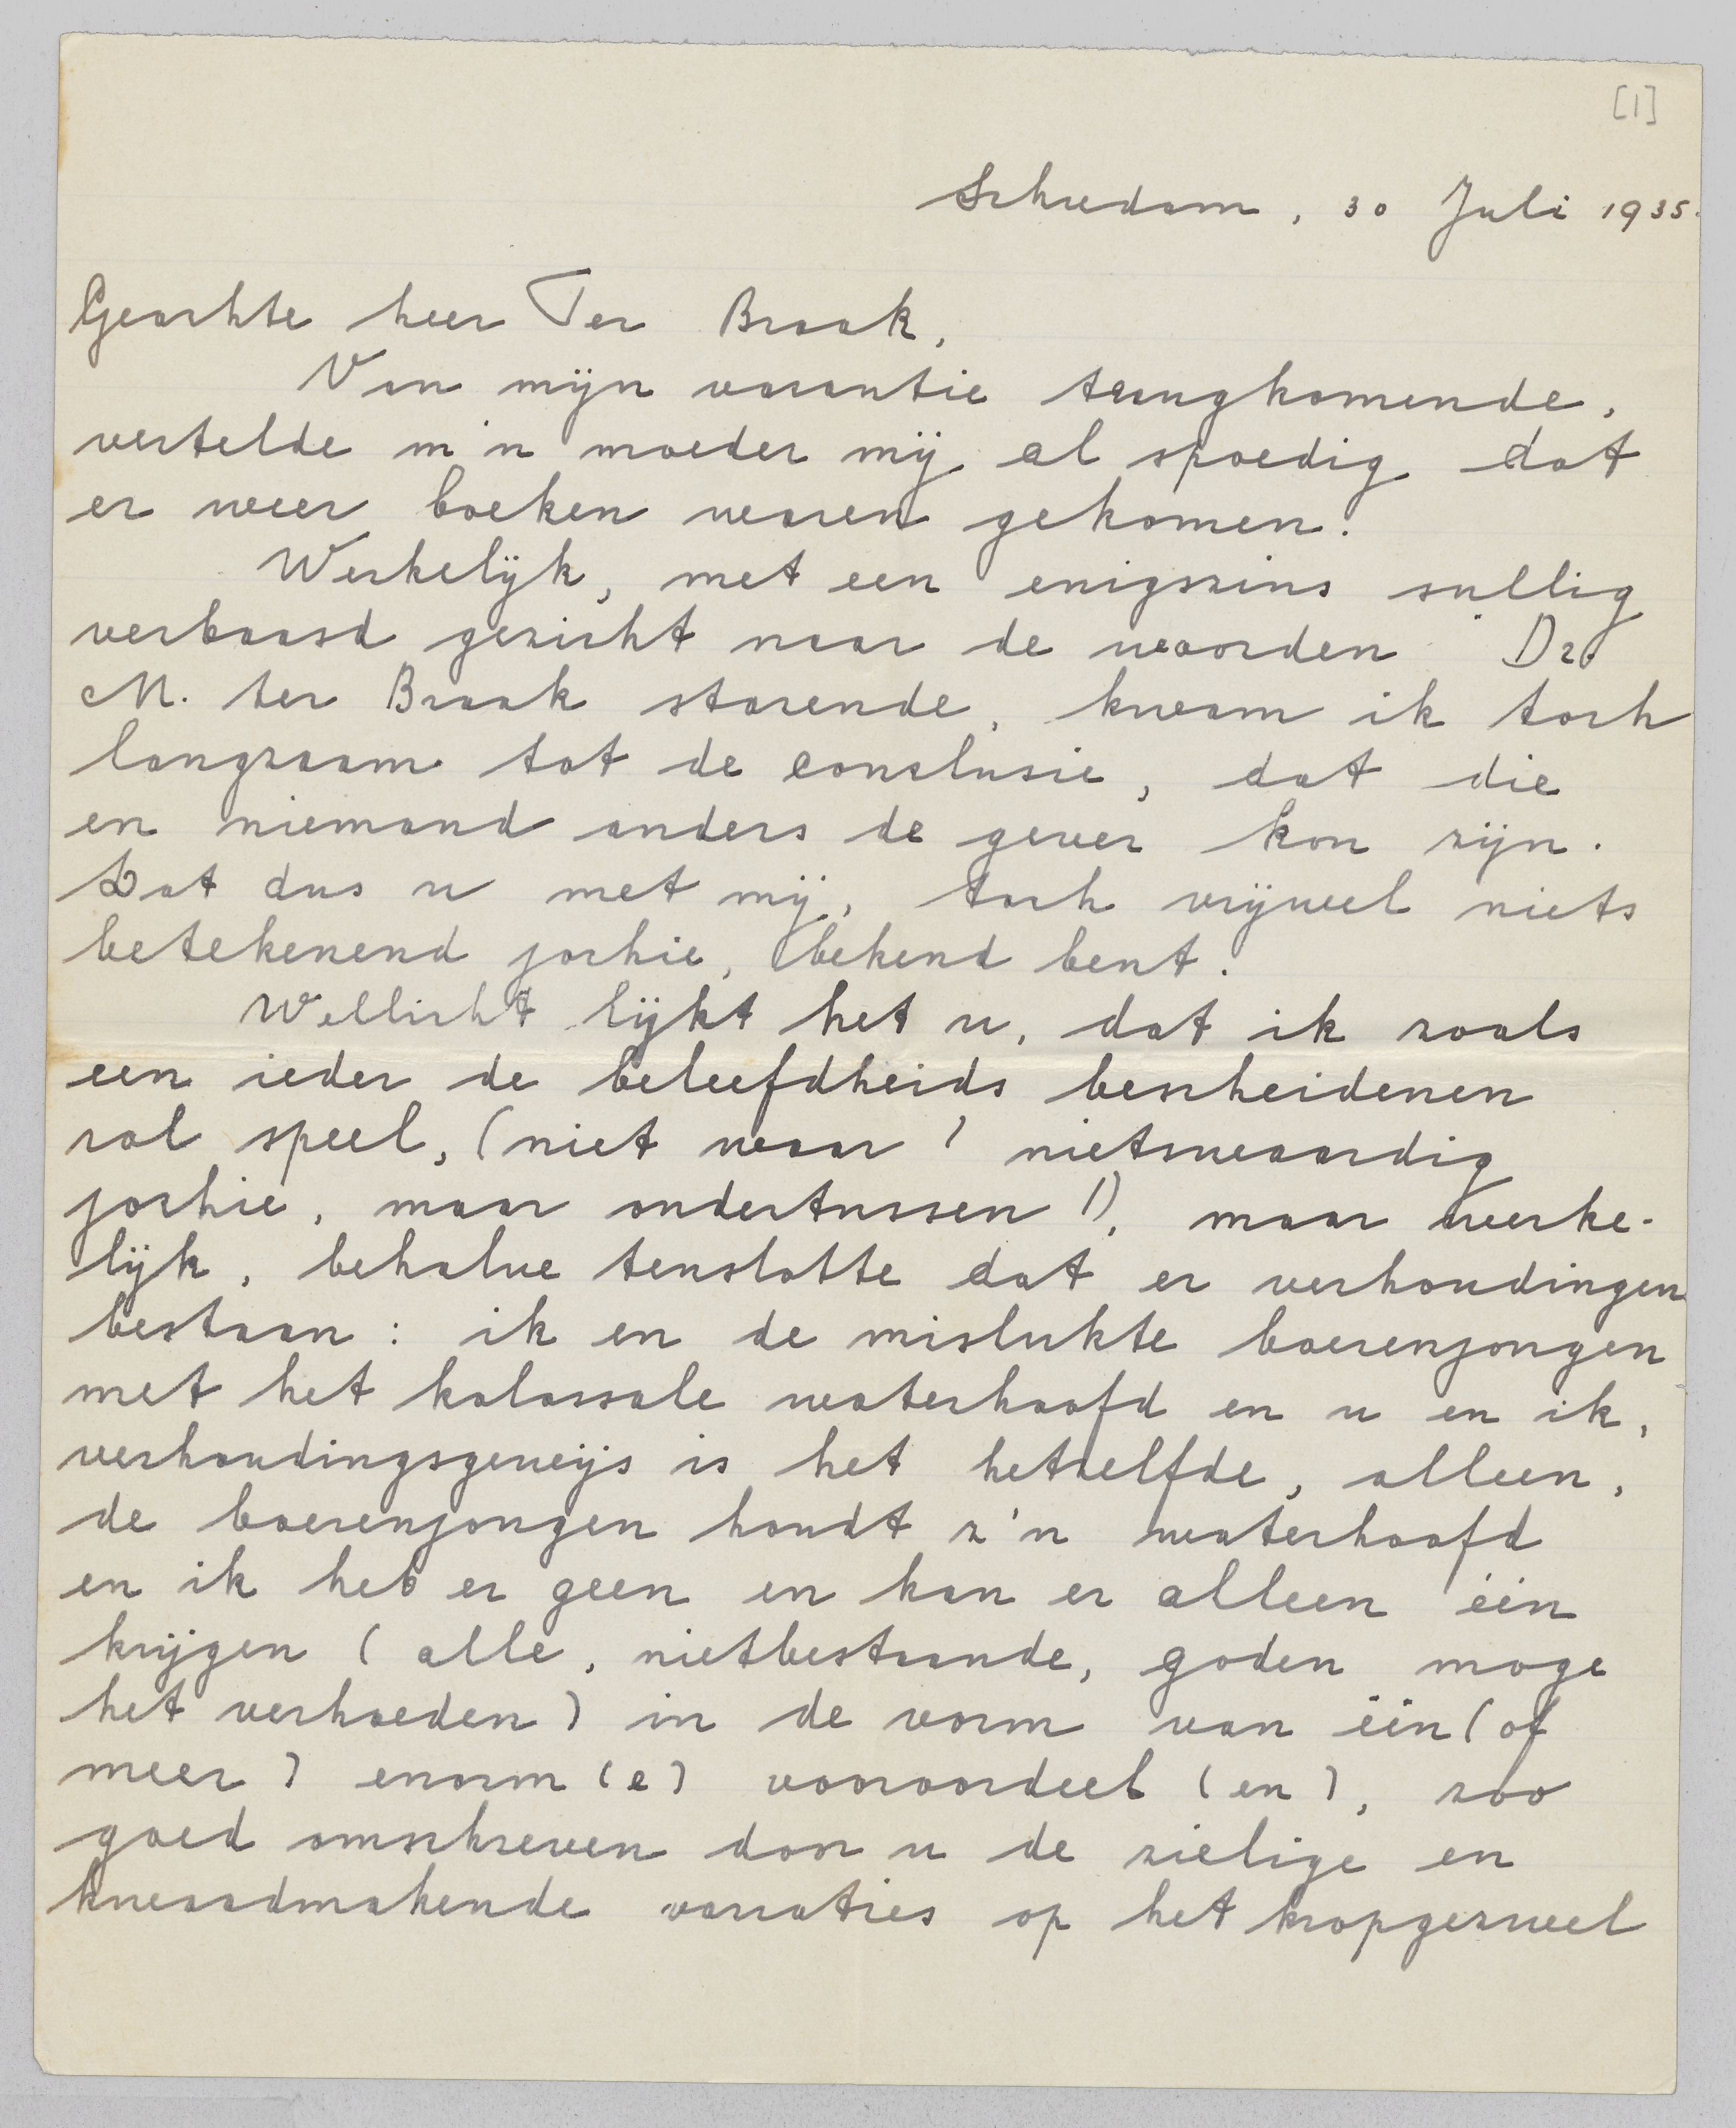 [1]
Schiedam, 30 Juli 1935.
Geachte heer Ter Braak,
Van mijn vacantie terugkomende,
vertelde m'n moeder mij al spoedig dat
er weer boeken waren gekomen.
Werkelijk, met een enigszins sullig
verbaasd gezicht naar de woorden Dr.
M. ter Braak starende, kwam ik toch
langzaam tot de conclusie, dat die
en niemand anders de gever kon zijn.
Dat dus u met mij, toch vrijwel niets
betekenend jochie, bekend bent.
Wellicht lijkt het u, dat ik zoals
een ieder de beleefdheids bescheidenen
rol speel, (niet waar! nietswaardig
jochie, maar ondertussen!), maar werke-
lijk, behalve tenslotte dat er verhoudingen
bestaan: ik en de mislukte boerenjongen
met het kolossale waterhoofd en u en ik,
verhoudingsgewijs is het hetzelfde, alleen,
de boerenjongen houdt z'n waterhoofd
en ik heb er geen en kan er alleen één
krijgen (alle, nietbestaande, goden moge
het verhoeden) in de vorm van één (of
meer) enorm(e) vooroordeel(en), zoo
goed omschreven door u de zielige en
kwaadmakende variaties op het kropgezwel